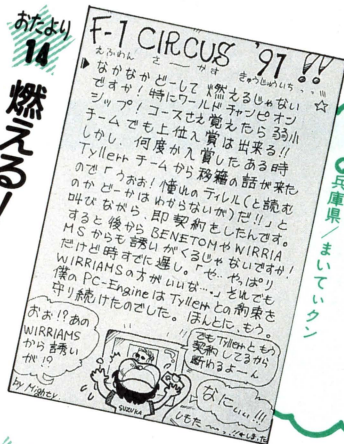 おたより
14
燃える!
F-1 CIRCUS '91!!
えふわん さーかす きゅうじゅういち…!!!
なかなかどーして燃えるじゃない☆
ですか!特にワールドチャンピオン
シップ!コースさえ覚えたら弱小
チームでも上位入賞は出来る!!
しかし、何度か入賞したある時
Tyllerrチームから移籍の話が来た
ので「うおお!憧れのティレル(と読む
のかどーかはわからないが)だ!!」と
叫びながら、即契約をしたんです。
すると後からBENETOMやWIRRIA
MSからも誘いがくるじゃないですか!
だけど時すでに遅し。「せ、やっぱり
WIRRIAMSの方がいいな…。」それでも
僕のPC-EngineはTyllerrとの約束を
守り続けたのでした。ほんとに、もう。
おお!?あの
WIRRIAMS
から誘い
が!?
でもTyllerrともう
契約してるから
断わるよーん
なに
いぃ!!!
SUZUKA
by Mighty
しまった
兵庫県/まいてぃクン